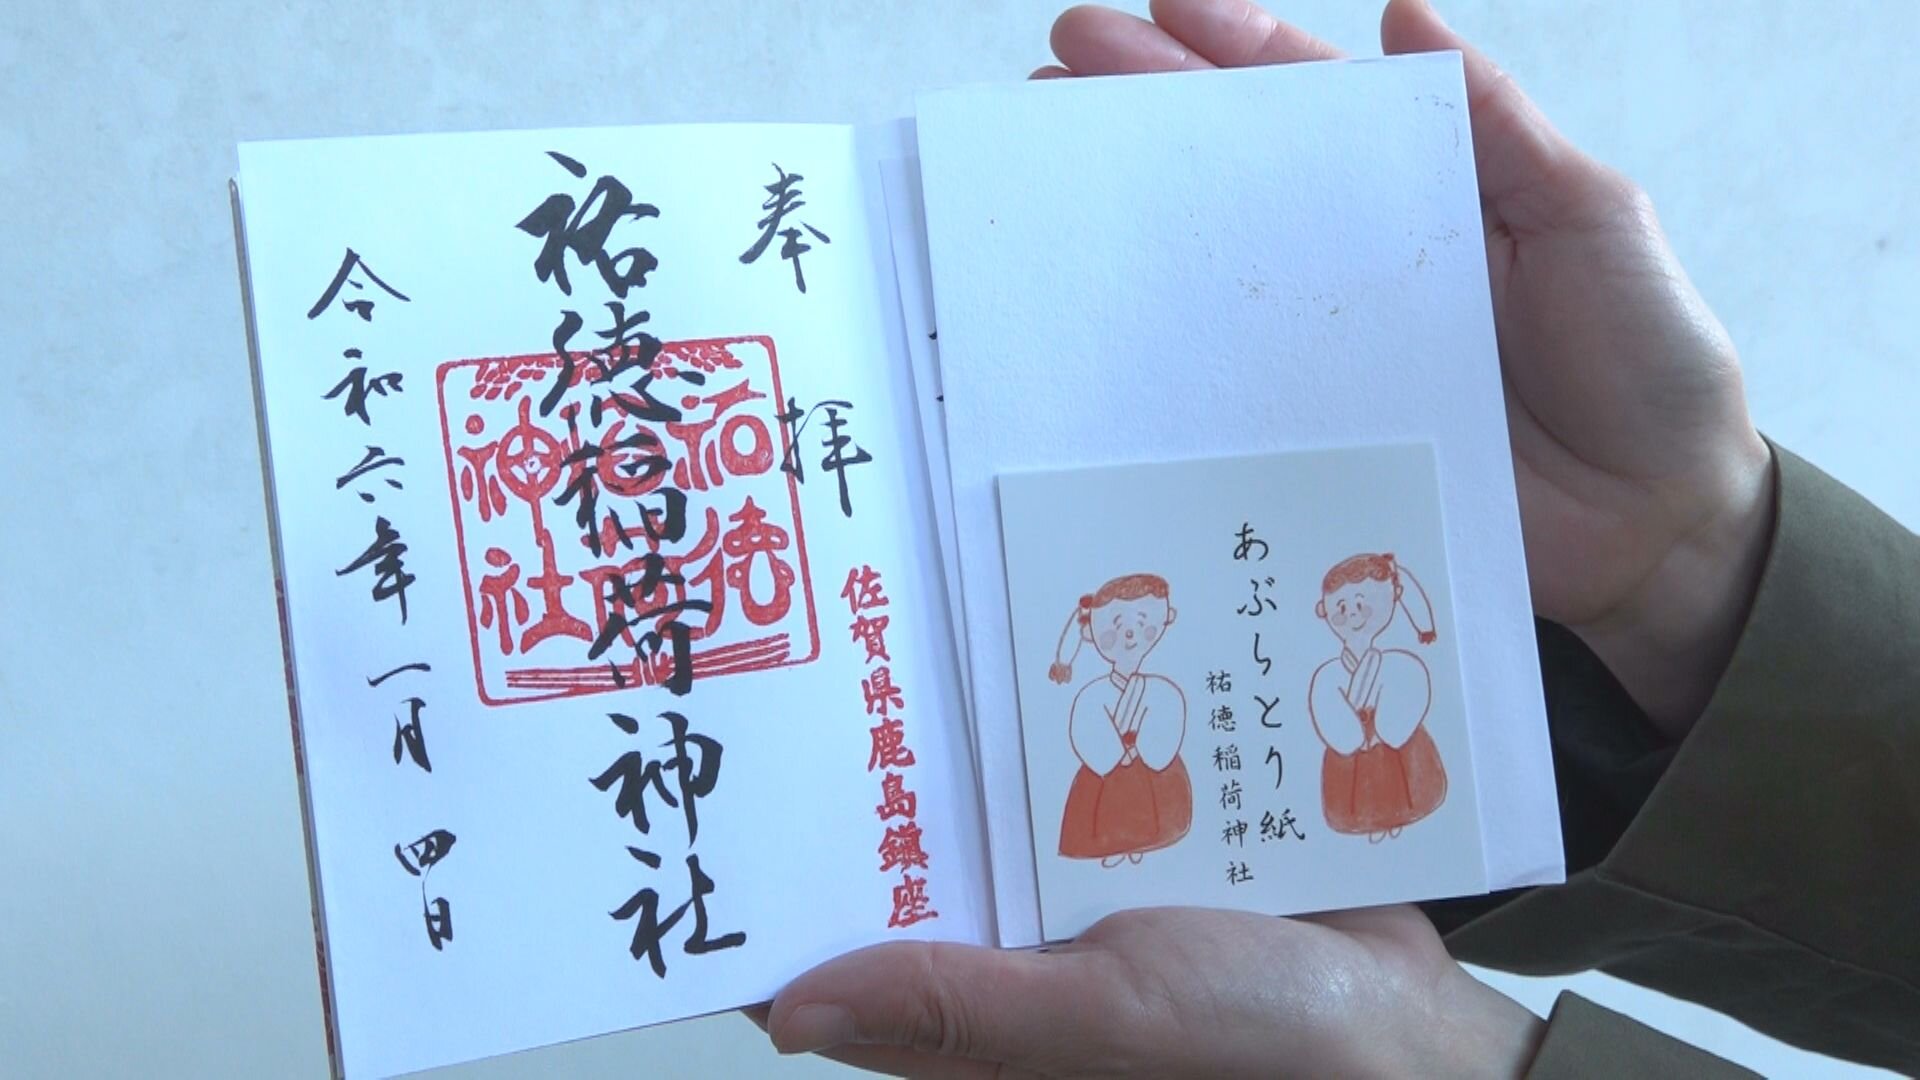 奉拝
祐徳稲荷神社
祐徳稲荷神社
佐賀県鹿島鎮座
令和六年一月四日
あぶらとり紙
祐徳稲荷神社